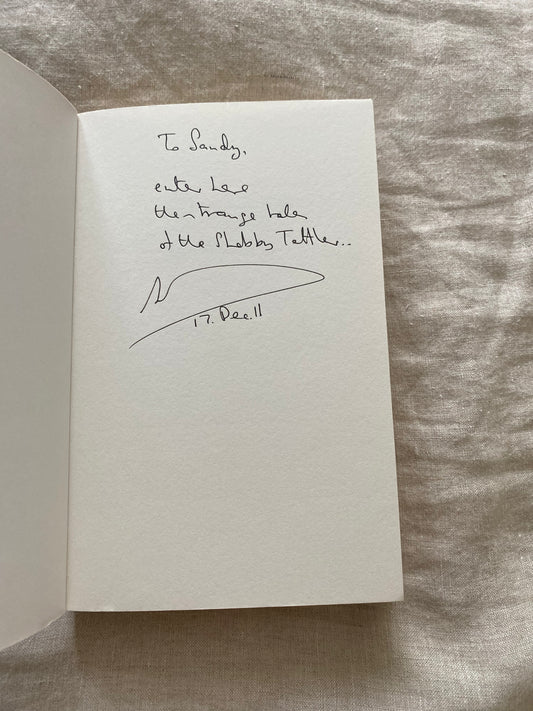 To Sandy,
enter here
the strange tales
of the Shabby Tattler..
17. Dec. 11